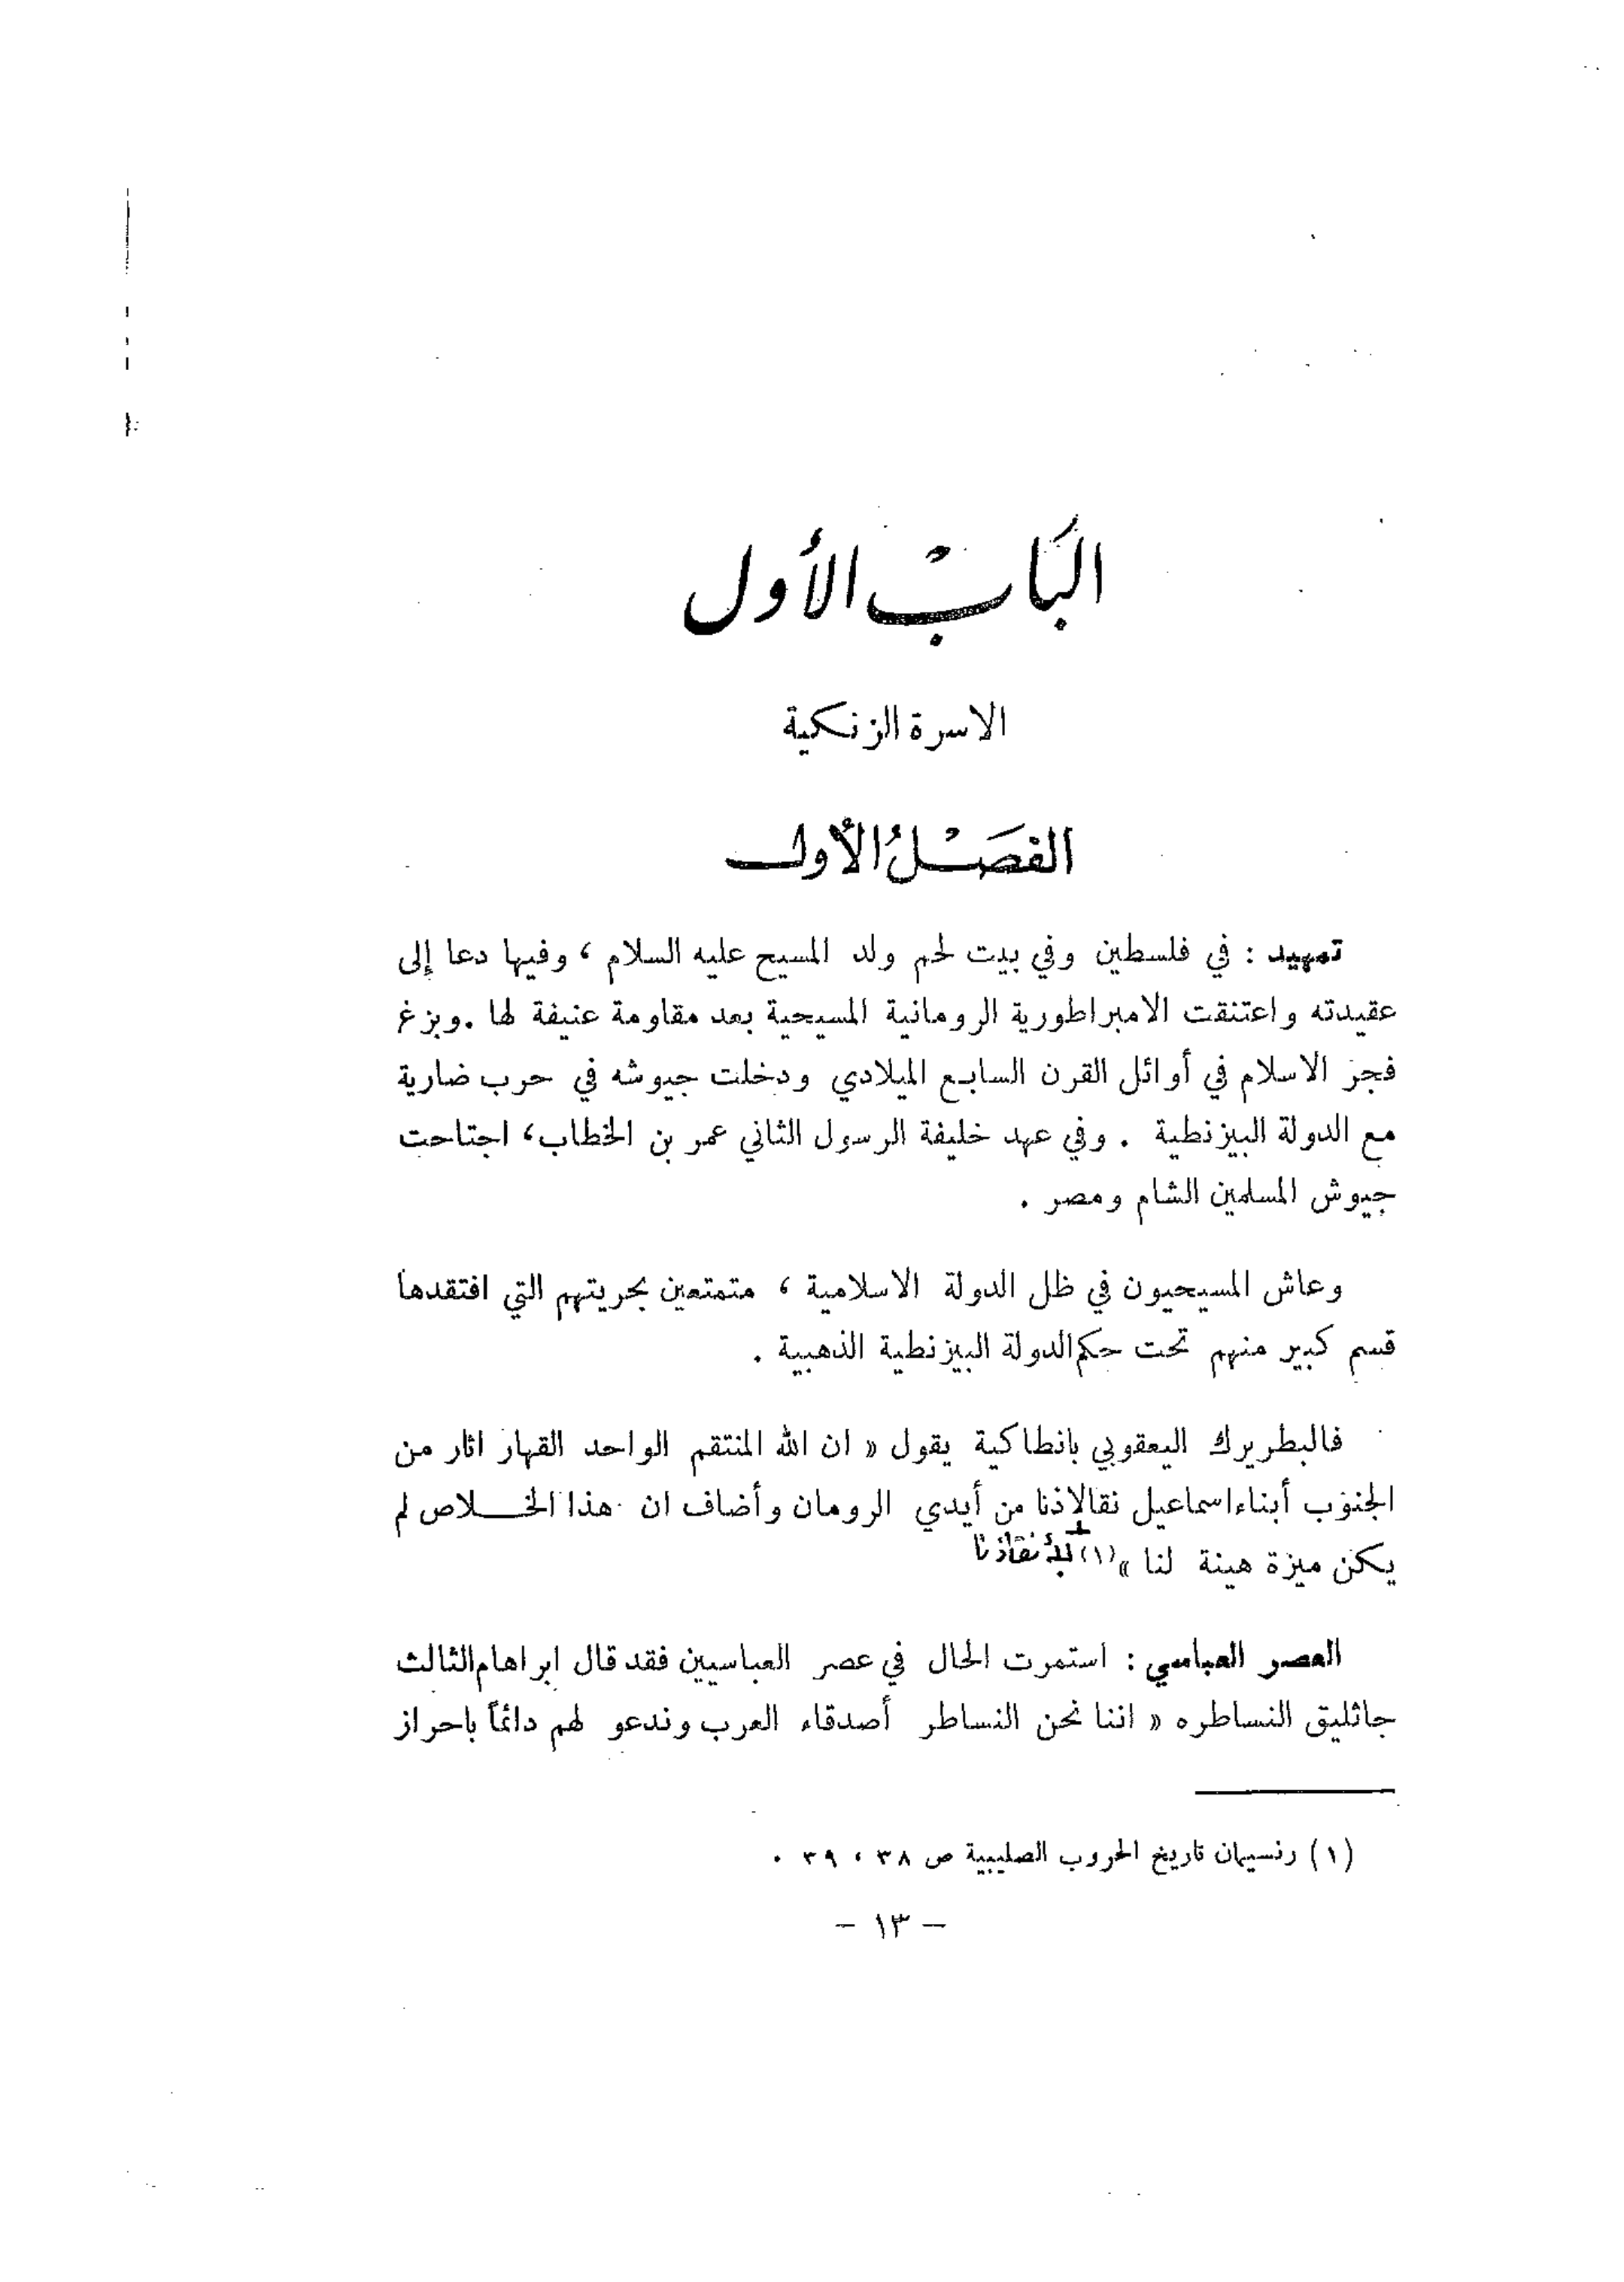 البَابُ الأول
الاسرة الزنكية
الفَصْلُ الأول
تمهيد : في فلسطين وفي بيت لحم ولد المسيح عليه السلام ، وفيها دعا إلى
عقيدته واعتنقت الامبراطورية الرومانية المسيحية بعد مقاومة عنيفة لها . وبزغ
فجر الاسلام في أوائل القرن السابع الميلادي ودخلت جيوشه في حرب ضارية
مع الدولة البيزنطية . وفي عهد خليفة الرسول الثاني عمر بن الخطاب، اجتاحت
جيوش المسلمين الشام ومصر .
وعاش المسيحيون في ظل الدولة الاسلامية ، متمتعين بحريتهم التي افتقدها
قسم كبير منهم تحت حكم الدولة البيزنطية الذهبية .
فالبطريرك اليعقوبي بانطاكية يقول « ان الله المنتقم الواحد القهار اثار من
الجنوب أبناء اسماعيل نقالاذنا من أيدي الرومان وأضاف ان هذا الخــلاص لم
يكن ميزة هينة لنا »(١) لأنقاذنا
العصر العباسي : استمرت الحال في عصر العباسيين فقد قال ابراهام الثالث
جاثليق النساطره « اننا نحن النساطر أصدقاء العرب وندعو لهم دائماً باحراز
(١) رنسيمان تاريخ الحروب الصليبية ص ٣٨ ، ٣٩ .
– ١٣ –